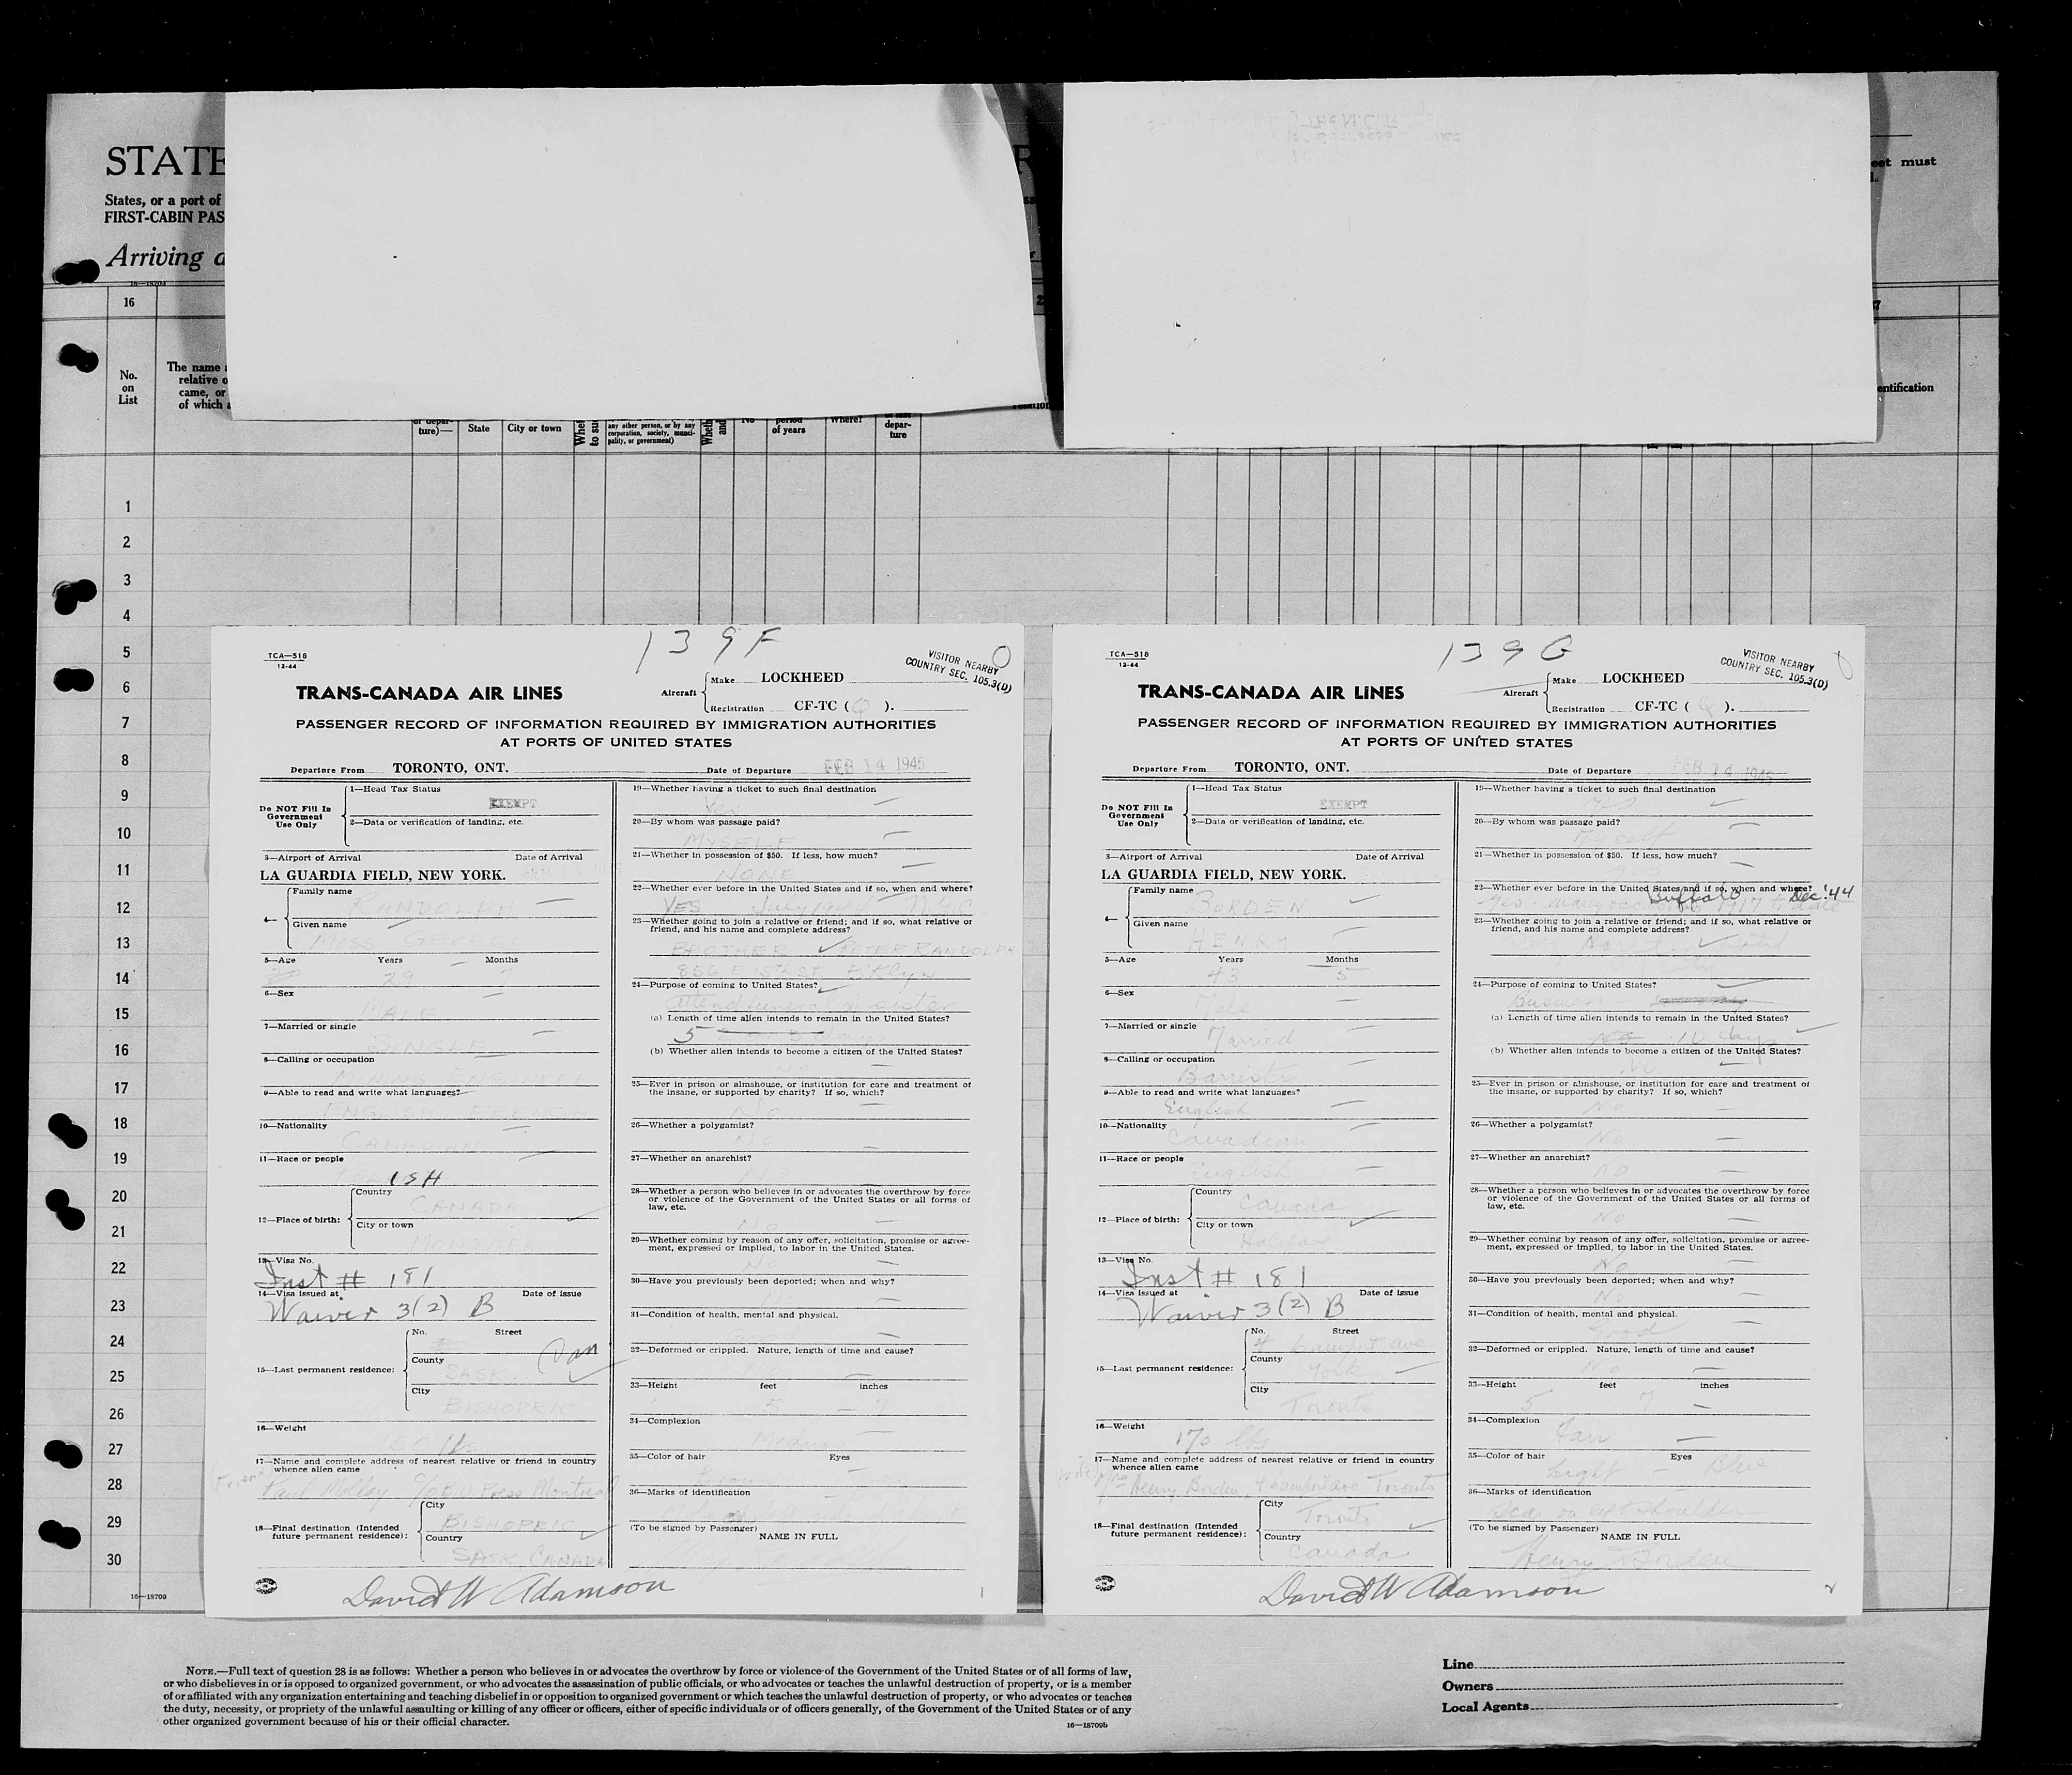 STATE
States, or a port of
FIRST-CABIN PAS
Arriving a
eet must
16—18709
16
No.
on
List
The name
relative o
came, or
of which a
ture)—
State
City or town
any other person, or by any
corporation, society, munici-
pality, or government)
No
period
of years
Where?
depar-
ture
entification
1
2
3
4
5
6
7
8
9
10
11
12
13
14
15
16
17
18
19
20
21
22
23
24
25
26
27
28
29
30
16—18709
139F
TCA—518
12-44
VISITOR NEARBY
COUNTRY SEC. 105.3(D)
TRANS-CANADA AIR LINES
Aircraft
Make LOCKHEED
Registration CF-TC ( Q ).
PASSENGER RECORD OF INFORMATION REQUIRED BY IMMIGRATION AUTHORITIES
AT PORTS OF UNITED STATES
Departure From TORONTO, ONT. Date of Departure FEB 14 1945
Do NOT Fill In
Government
Use Only
1—Head Tax Status
EXEMPT
2—Data or verification of landing, etc.
3—Airport of Arrival Date of Arrival
LA GUARDIA FIELD, NEW YORK.
4—
Family name
RANDOLPH
Given name
MOSS GEORGE
5—Age Years Months
29 7
6—Sex
MALE
7—Married or single
SINGLE
8—Calling or occupation
MINING ENGINEER
9—Able to read and write what languages?
ENGLISH FRENCH
10—Nationality
CANADIAN
11—Race or people
ISH
12—Place of birth:
Country
CANADA
City or town
MONTREAL
13—Visa No.
Inst # 181
14—Visa issued at Date of issue
Waiver 3(2) B
15—Last permanent residence:
No. Street
County
SASK.
City
BISHOPRIC
16—Weight
150 lbs
17—Name and complete address of nearest relative or friend in country
whence alien came
(Friend) Paul Press Montreal
18—Final destination (Intended
future permanent residence):
City
BISHOPRIC
Country
SASK, CANADA
19—Whether having a ticket to such final destination
Yes
20—By whom was passage paid?
MYSELF
21—Whether in possession of $50. If less, how much?
NONE
22—Whether ever before in the United States and if so, when and where?
YES July 1944 N.Y.C.
23—Whether going to join a relative or friend; and if so, what relative or
friend, and his name and complete address?
BROTHER PETER RANDOLPH
856 E 15th ST. B'Klyn
24—Purpose of coming to United States?
attend funeral of sister
(a) Length of time alien intends to remain in the United States?
5
(b) Whether alien intends to become a citizen of the United States?
No
25—Ever in prison or almshouse, or institution for care and treatment of
the insane, or supported by charity? If so, which?
No
26—Whether a polygamist?
No
27—Whether an anarchist?
No
28—Whether a person who believes in or advocates the overthrow by force
or violence of the Government of the United States or all forms of
law, etc.
No
29—Whether coming by reason of any offer, solicitation, promise or agree-
ment, expressed or implied, to labor in the United States.
No
30—Have you previously been deported; when and why?
No
31—Condition of health, mental and physical.
32—Deformed or crippled. Nature, length of time and cause?
33—Height feet inches
5 7
34—Complexion
35—Color of hair Eyes
Brown
36—Marks of identification
(To be signed by Passenger)
NAME IN FULL
David W Adamson
139G
TCA—518
12-44
VISITOR NEARBY
COUNTRY SEC. 105.3(D)
TRANS-CANADA AIR LINES
Aircraft
Make LOCKHEED
Registration CF-TC ( Q ).
PASSENGER RECORD OF INFORMATION REQUIRED BY IMMIGRATION AUTHORITIES
AT PORTS OF UNITED STATES
Departure From TORONTO, ONT. Date of Departure FEB 14 1945
Do NOT Fill In
Government
Use Only
1—Head Tax Status
EXEMPT
2—Data or verification of landing, etc.
3—Airport of Arrival Date of Arrival
LA GUARDIA FIELD, NEW YORK.
4—
Family name
BORDEN
Given name
HENRY
5—Age Years Months
43 5
6—Sex
Male
7—Married or single
Married
8—Calling or occupation
Barrister
9—Able to read and write what languages?
English
10—Nationality
Canadian
11—Race or people
English
12—Place of birth:
Country
Canada
City or town
Halifax
13—Visa No.
Inst # 181
14—Visa issued at Date of issue
Waiver 3(2) B
15—Last permanent residence:
No. Street
4 ave
County
York
City
Toronto
16—Weight
170 lbs
17—Name and complete address of nearest relative or friend in country
whence alien came
(wife) Mrs Henry Borden, 4 ave Toronto
18—Final destination (Intended
future permanent residence):
City
Toronto
Country
Canada
19—Whether having a ticket to such final destination
Yes
20—By whom was passage paid?
Myself
21—Whether in possession of $50. If less, how much?
22—Whether ever before in the United States and if so, when and where?
Buffalo Dec. '44
23—Whether going to join a relative or friend; and if so, what relative or
friend, and his name and complete address?
24—Purpose of coming to United States?
Business
(a) Length of time alien intends to remain in the United States?
10 days
(b) Whether alien intends to become a citizen of the United States?
No
25—Ever in prison or almshouse, or institution for care and treatment of
the insane, or supported by charity? If so, which?
No
26—Whether a polygamist?
No
27—Whether an anarchist?
No
28—Whether a person who believes in or advocates the overthrow by force
or violence of the Government of the United States or all forms of
law, etc.
No
29—Whether coming by reason of any offer, solicitation, promise or agree-
ment, expressed or implied, to labor in the United States.
No
30—Have you previously been deported; when and why?
No
31—Condition of health, mental and physical.
Good
32—Deformed or crippled. Nature, length of time and cause?
No
33—Height feet inches
5 7
34—Complexion
Fair
35—Color of hair Eyes
Light Blue
36—Marks of identification
Scar on left shoulder
(To be signed by Passenger)
NAME IN FULL
Henry Borden
David W Adamson
NOTE.—Full text of question 28 is as follows: Whether a person who believes in or advocates the overthrow by force or violence of the Government of the United States or of all forms of law,
or who disbelieves in or is opposed to organized government, or who advocates the assassination of public officials, or who advocates or teaches the unlawful destruction of property, or is a member
of or affiliated with any organization entertaining and teaching disbelief in or opposition to organized government or which teaches the unlawful destruction of property, or who advocates or teaches
the duty, necessity, or propriety of the unlawful assaulting or killing of any officer or officers, either of specific individuals or of officers generally, of the Government of the United States or of any
other organized government because of his or their official character.
16—18709b
Line
Owners
Local Agents